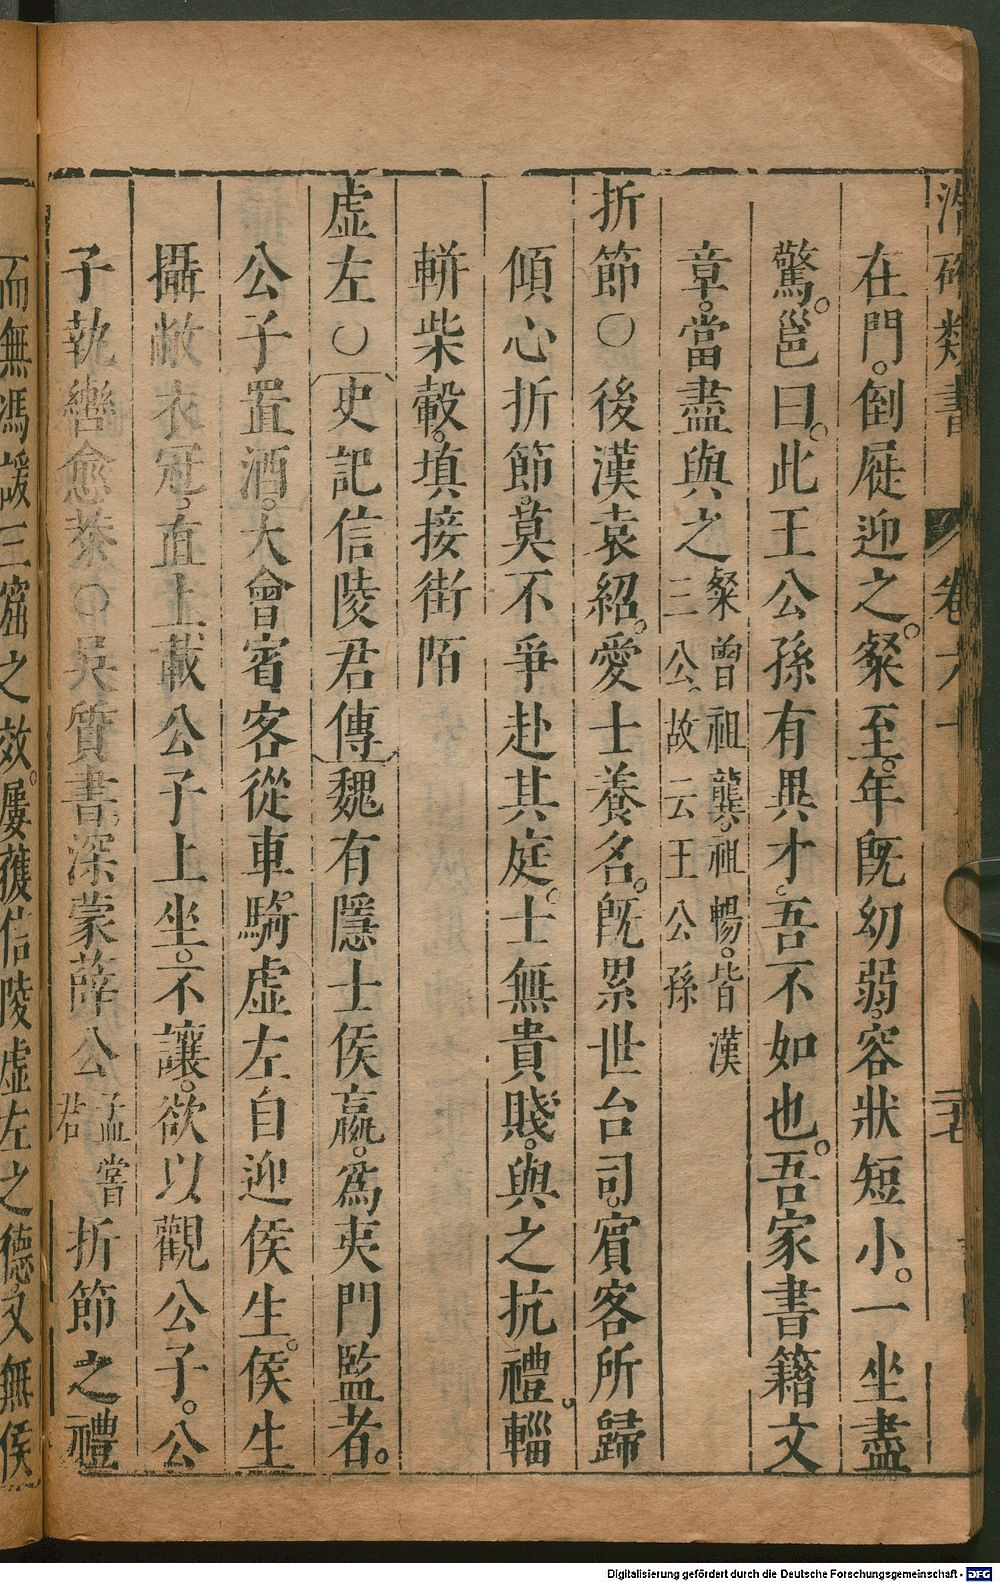 類書 卷六十 二七
在門。倒屣迎之。粲至。年旣幼弱。容狀短小。一坐盡
驚。邕曰。此王公孫有異才。吾不如也。吾家書籍文
章。當盡與之粲曾祖龔。祖暢。皆漢三公。故云王公孫
折節○後漢袁紹。愛士養名。旣累世台司。賓客所歸
傾心折節。莫不爭赴其庭。士無貴賤。與之抗禮。輜
軿柴轂。填接街陌
虛左○史記信陵君傳魏有隱士侯嬴。爲夷門監者。
公子置酒。大會賓客從車騎虛左自迎侯生。侯生
攝敝衣冠。直上載公子上坐。不讓。欲以觀公子。公
子執轡愈恭○吳質書深蒙薛公孟嘗君折節之禮
而無馮諼三窟之效。屢獲信陵虛左之德又無侯
Digitalisierung gefördert durch die Deutsche Forschungsgemeinschaft - DFG